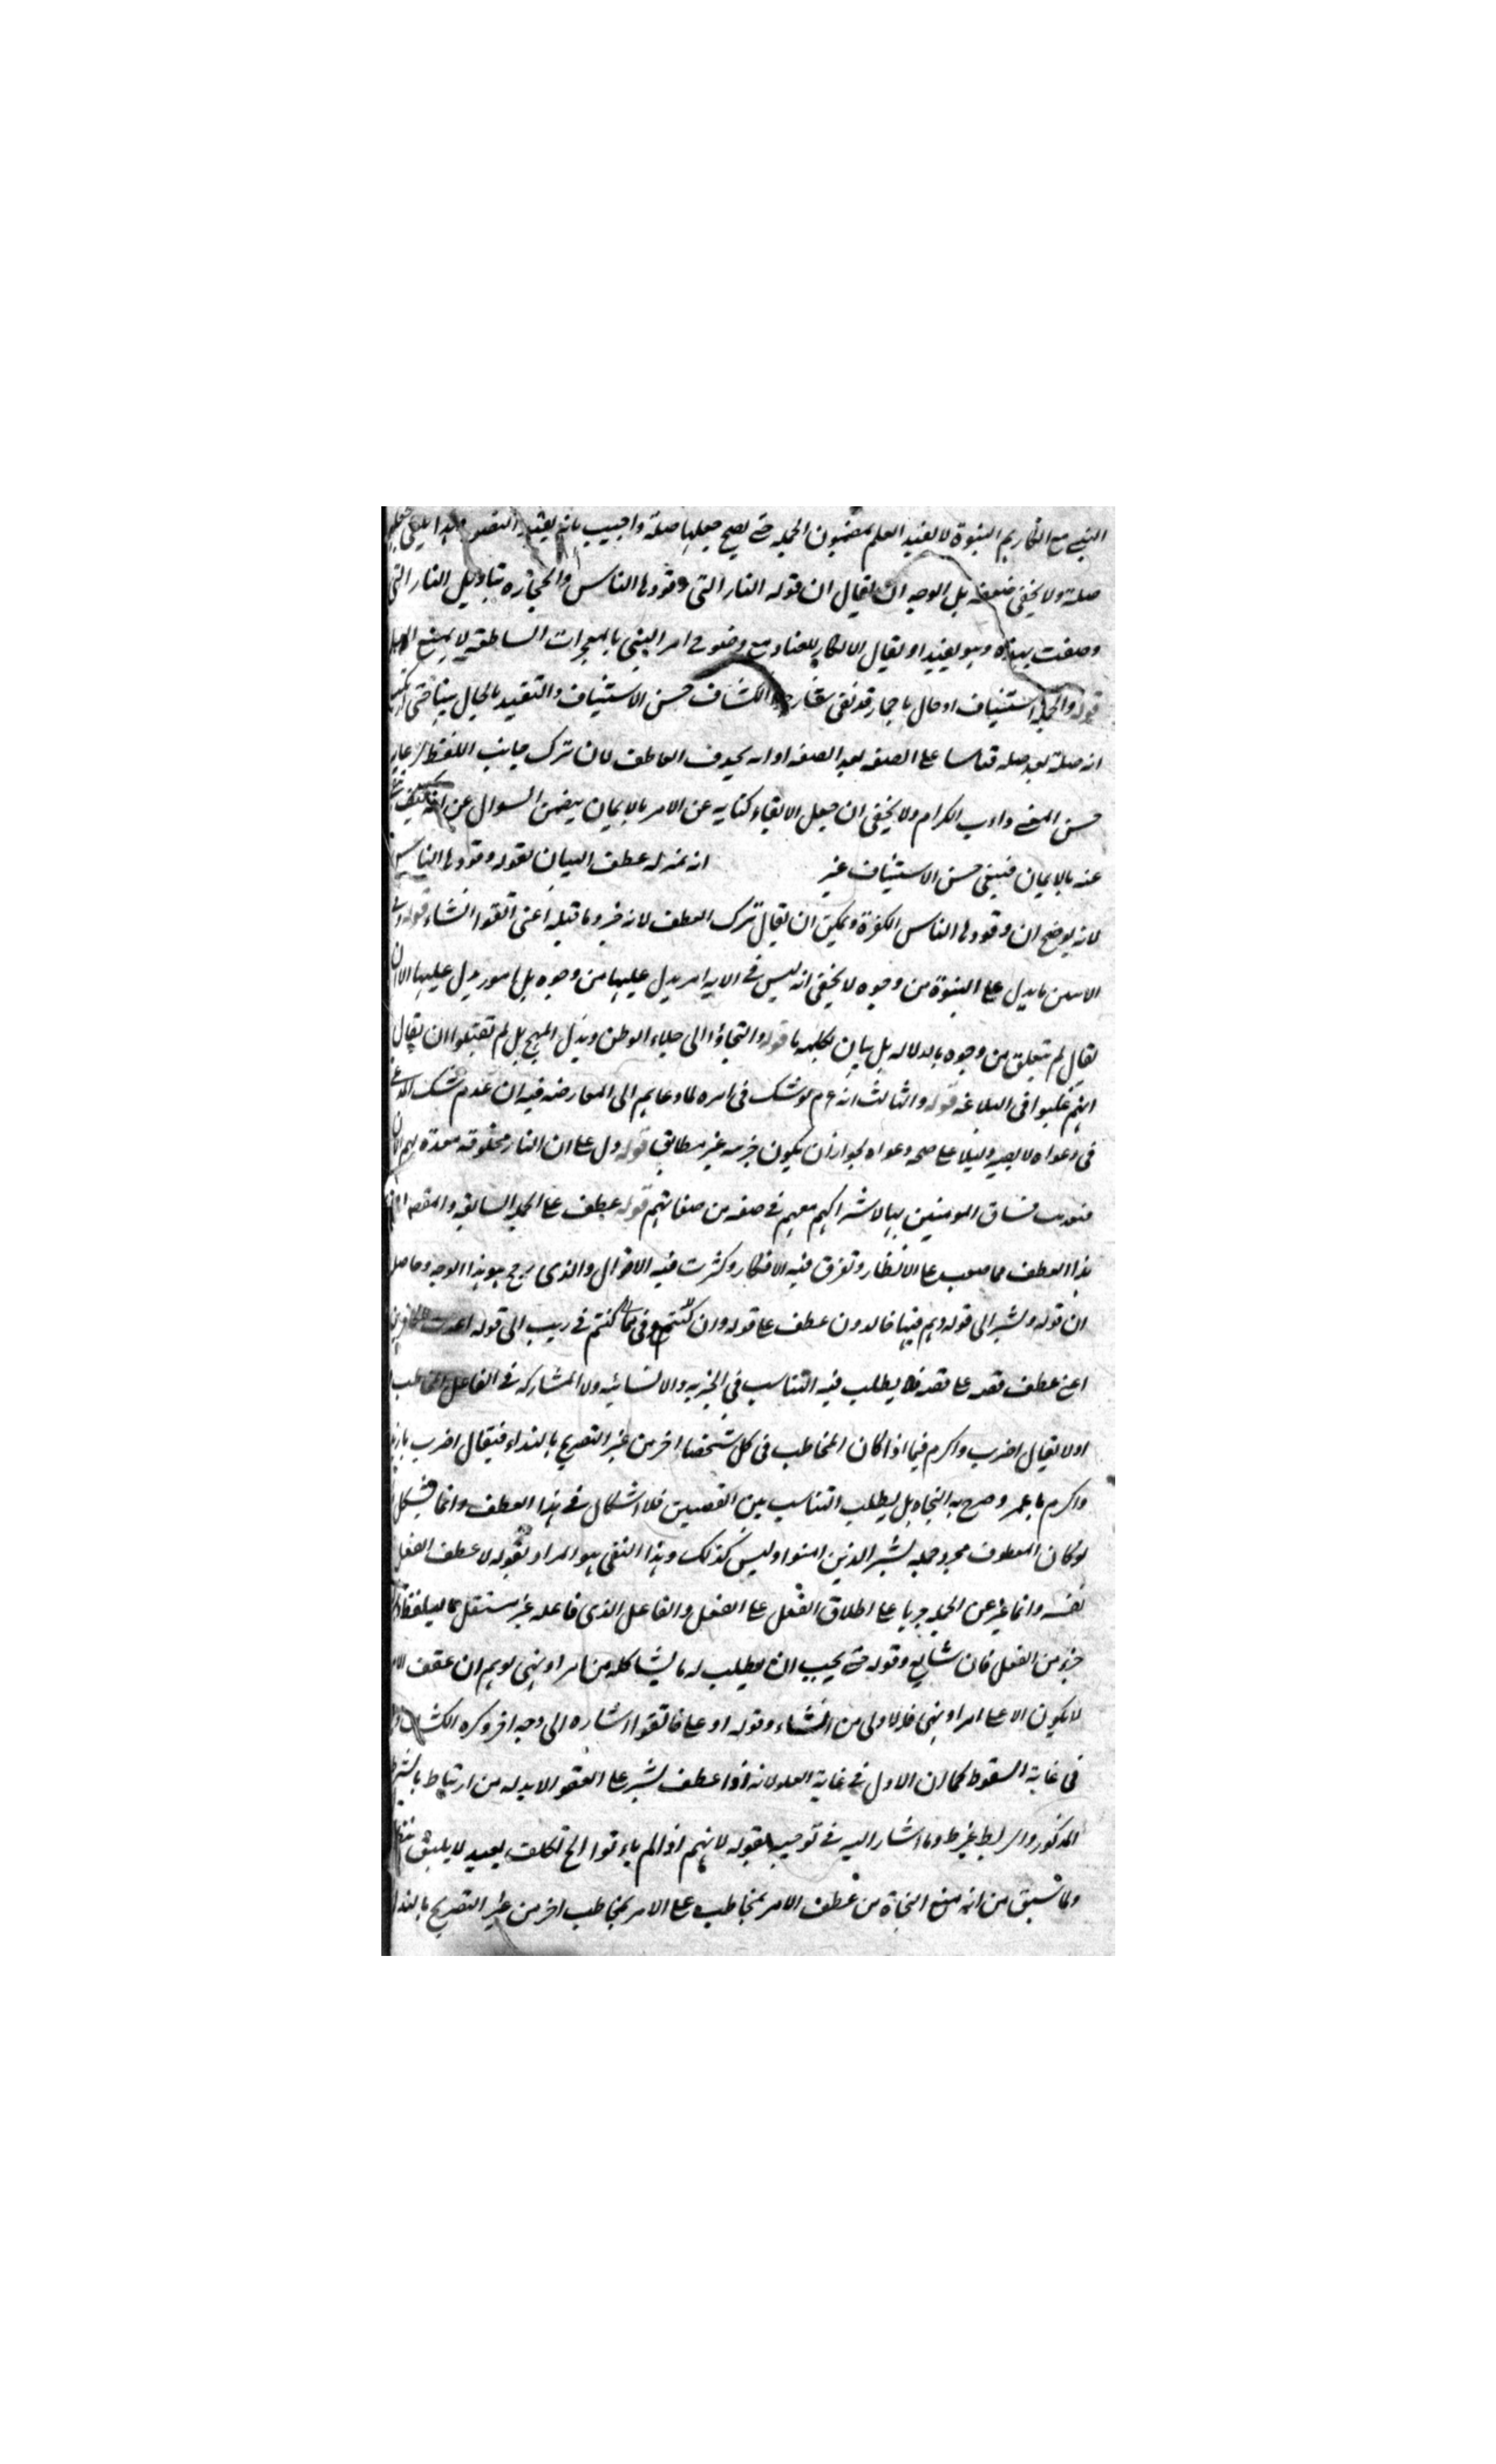 النبي مع انكارهم النبوة لا يفيد العلم بمضمون الجملة حتى يصح جعلها صلة واجيب بانه يفيد
صلة ولا يخفى ضعفه بل الوجه ان يقال ان قوله النار التي وقودها الناس والحجارة بتاويل النار التي
وصفت بهذه وهو يفيد او يقال الانكار للعناد مع وضوح امر النبي بالمعجرات الساطعة لا يمنع
قوله والجملة استيناف او حال باضمار قد نفى الكشاف حسن الاستيناف والتقييد بالحال
انه صلة بعد صلة قياسا على الصفة بعد الصفة او انه بحذف العاطف لان ترك جانب اللفظ
حسن المعنى داب الكرام ولا يخفى ان جعل الاتقاء كناية عن الامر بالايمان يتضمن السوال عن
عنه بالايمان فينبغي حسن الاستيناف غير انه بمنزلة عطف البيان لقوله وقودها الناس
لانه يوضح ان وقودها الناس الكفرة ويمكن ان يقال ترك العطف لانه خبر وما قبله اعنى اتقوا انشاء قوله
ما يدل على النبوة من وجوه لا يخفى انه ليس في الاية امر يدل عليها من وجوه بل امور يدل عليها الا ان
يقال لم يتعلق من وجوه بالدلالة بل بيان لكلمة ما قوله والتجاؤا الى جلاء الوطن وبذل المهج بل لم يقبلوا ان يقال
انهم غلبوا في البلاغة قوله والثالث انه عم لو شك في امره لما دعاهم الى المعارضة فيه ان عدم شك
في دعواه لا يصير دليلا على صحة دعواه لجواز ان يكون جزمه غير مطابق قوله دل على ان النار مخلوقة معدة لهم
فساق المومنين بها لاشراكهم معهم في صفة من صفاتهم قوله عطف على الجملة السابقة والمقصود
هذا العطف مما صعب على الانظار وتفرق فيه الافكار وكثرت فيه الاقوال والذي رجح هو هذا الوجه وحاصله
ان قوله وبشر الى قوله وهم فيها خالدون عطف على قوله وان كنتم في ريب الى قوله اعدت للكافرين
اعنى عطف قصة على قصة فلا يطلب فيه التناسب في الخبرية والانشائية ولا المشاركة في الفاعل المخاطب
اولا يقال اضرب واكرم فيما اذا كان المخاطب في كل شخصا اخر من غير التصريح بالنداء فيقال اضرب يا زيد
واكرم يا عمر وصرح به النحاة بل يطلب التناسب بين القصتين فلا اشكال في هذا العطف وانما يشكل
لو كان المعطوف مجرد جملة بشر الذين امنوا وليس كذلك وهذا النفي هو المراد بقوله لا عطف الفعل
نفسه وانما عبر عن الجملة جريا على اطلاق الفعل على الفعل والفاعل الذي فاعله غير مستقل
جزء من الفعل فان شايع وقوله حتى يجب ان يطلب له ما يشاكله من امر او نهى يوهم ان عطف الامر
لا يكون الا على امر او نهى فلا لاولى من انشاء وقوله او على فاتقوا اشارة الى وجه اخر ذكره الكشاف
في غاية السقوط كما ان الاول في غاية العلو لانه اذا عطف بشر على اتقوا لابد له من ارتباط بالشرط
المذكور وما اشار اليه في توجيه بقوله لانهم اذا لم ياتوا الخ تكلف بعيد لا يليق
ولما سبق من انه منع النحاة من عطف الامر بمخاطب على الامر بمخاطب اخر من غير التصريح بالنداء